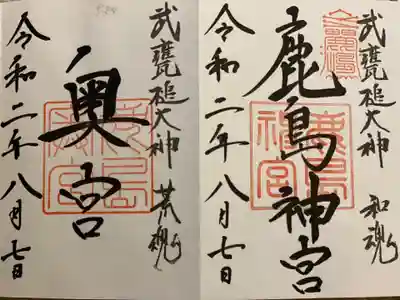 武甕槌大神 和魂
鹿島神宮
鹿島
神宮
令和二年八月七日
武甕槌大神 荒魂
奥宮
令和二年八月七日